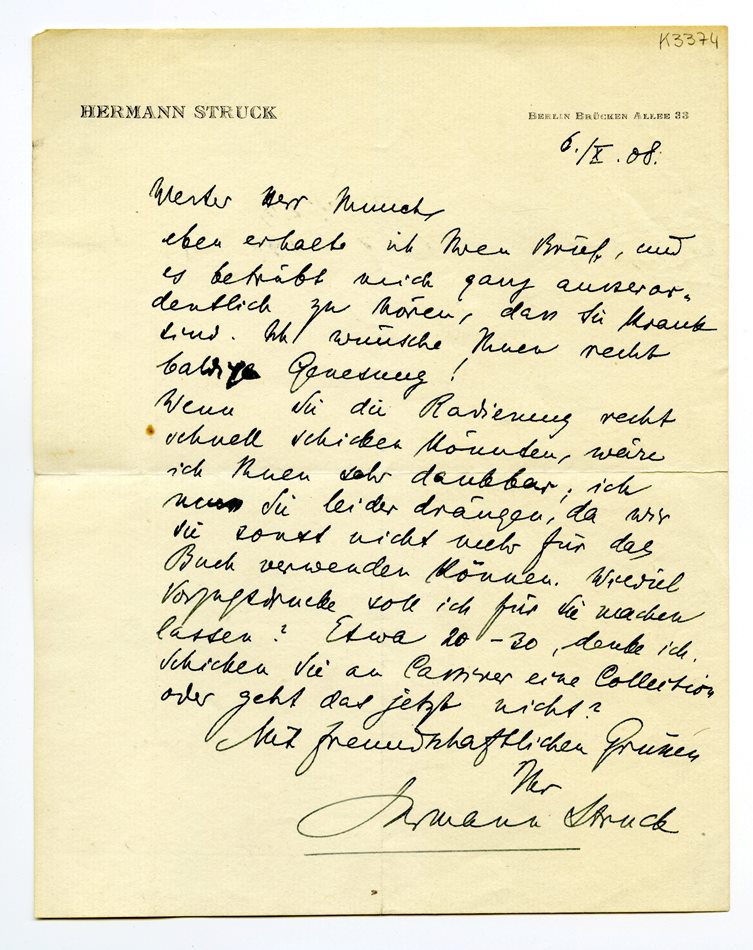 K3374
HERMANN STRUCK
BERLIN BRÜCKEN ALLEE 33
6./X.08.
Werter Herr Munch,
eben erhalte ich Ihren Brief, und
es betrübt mich ganz ausseror-
dentlich zu hören, dass Sie krank
sind. Ich wünsche Ihnen recht
baldige Genesung!
Wenn Sie die Radierung recht
schnell schicken könnten, wäre
ich Ihnen sehr dankbar; ich
muss Sie leider drängen, da wir
sie sonst nicht mehr für das
Buch verwenden können. Wieviel
Vorzugsdrucke soll ich für Sie machen
lassen? Etwa 20-30, denke ich.
Schicken Sie an Cassirer eine Collection
oder geht das jetzt nicht?
Mit freundschaftlichen Grüssen
Ihr
Hermann Struck